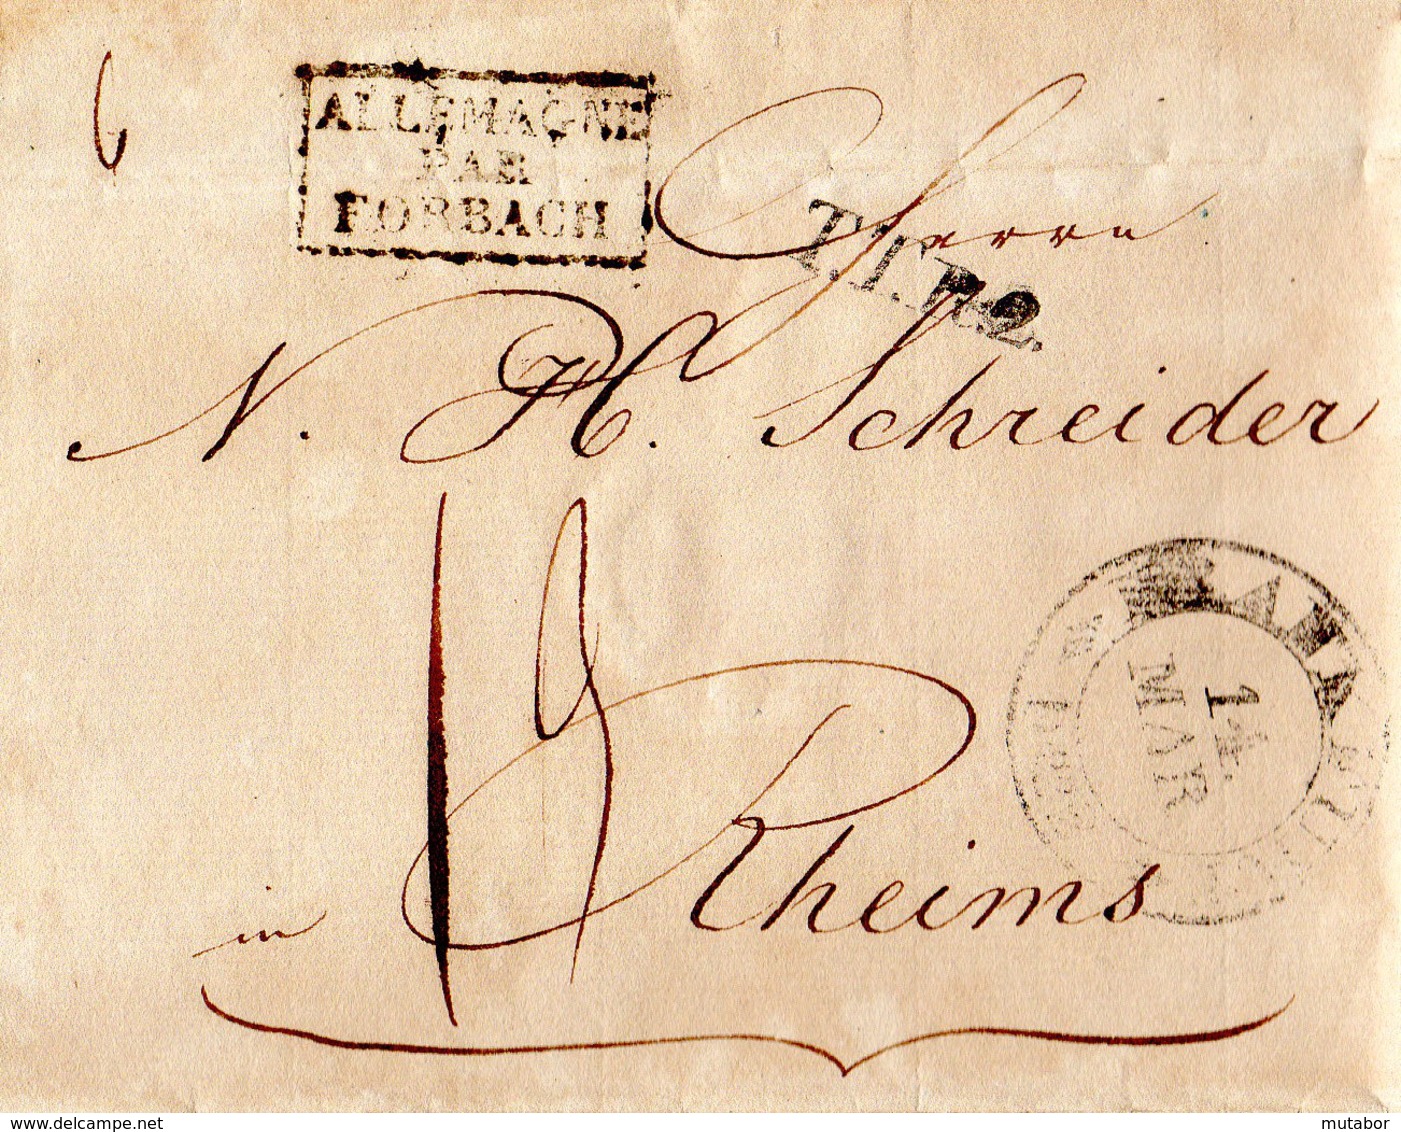 6
ALLEMAGNE
PAR
FORBACH
Herrn
T.T.R.2.
N. H. Schreider
19
14.
MAR
in Rheims
www.delcampe.net
mutabor